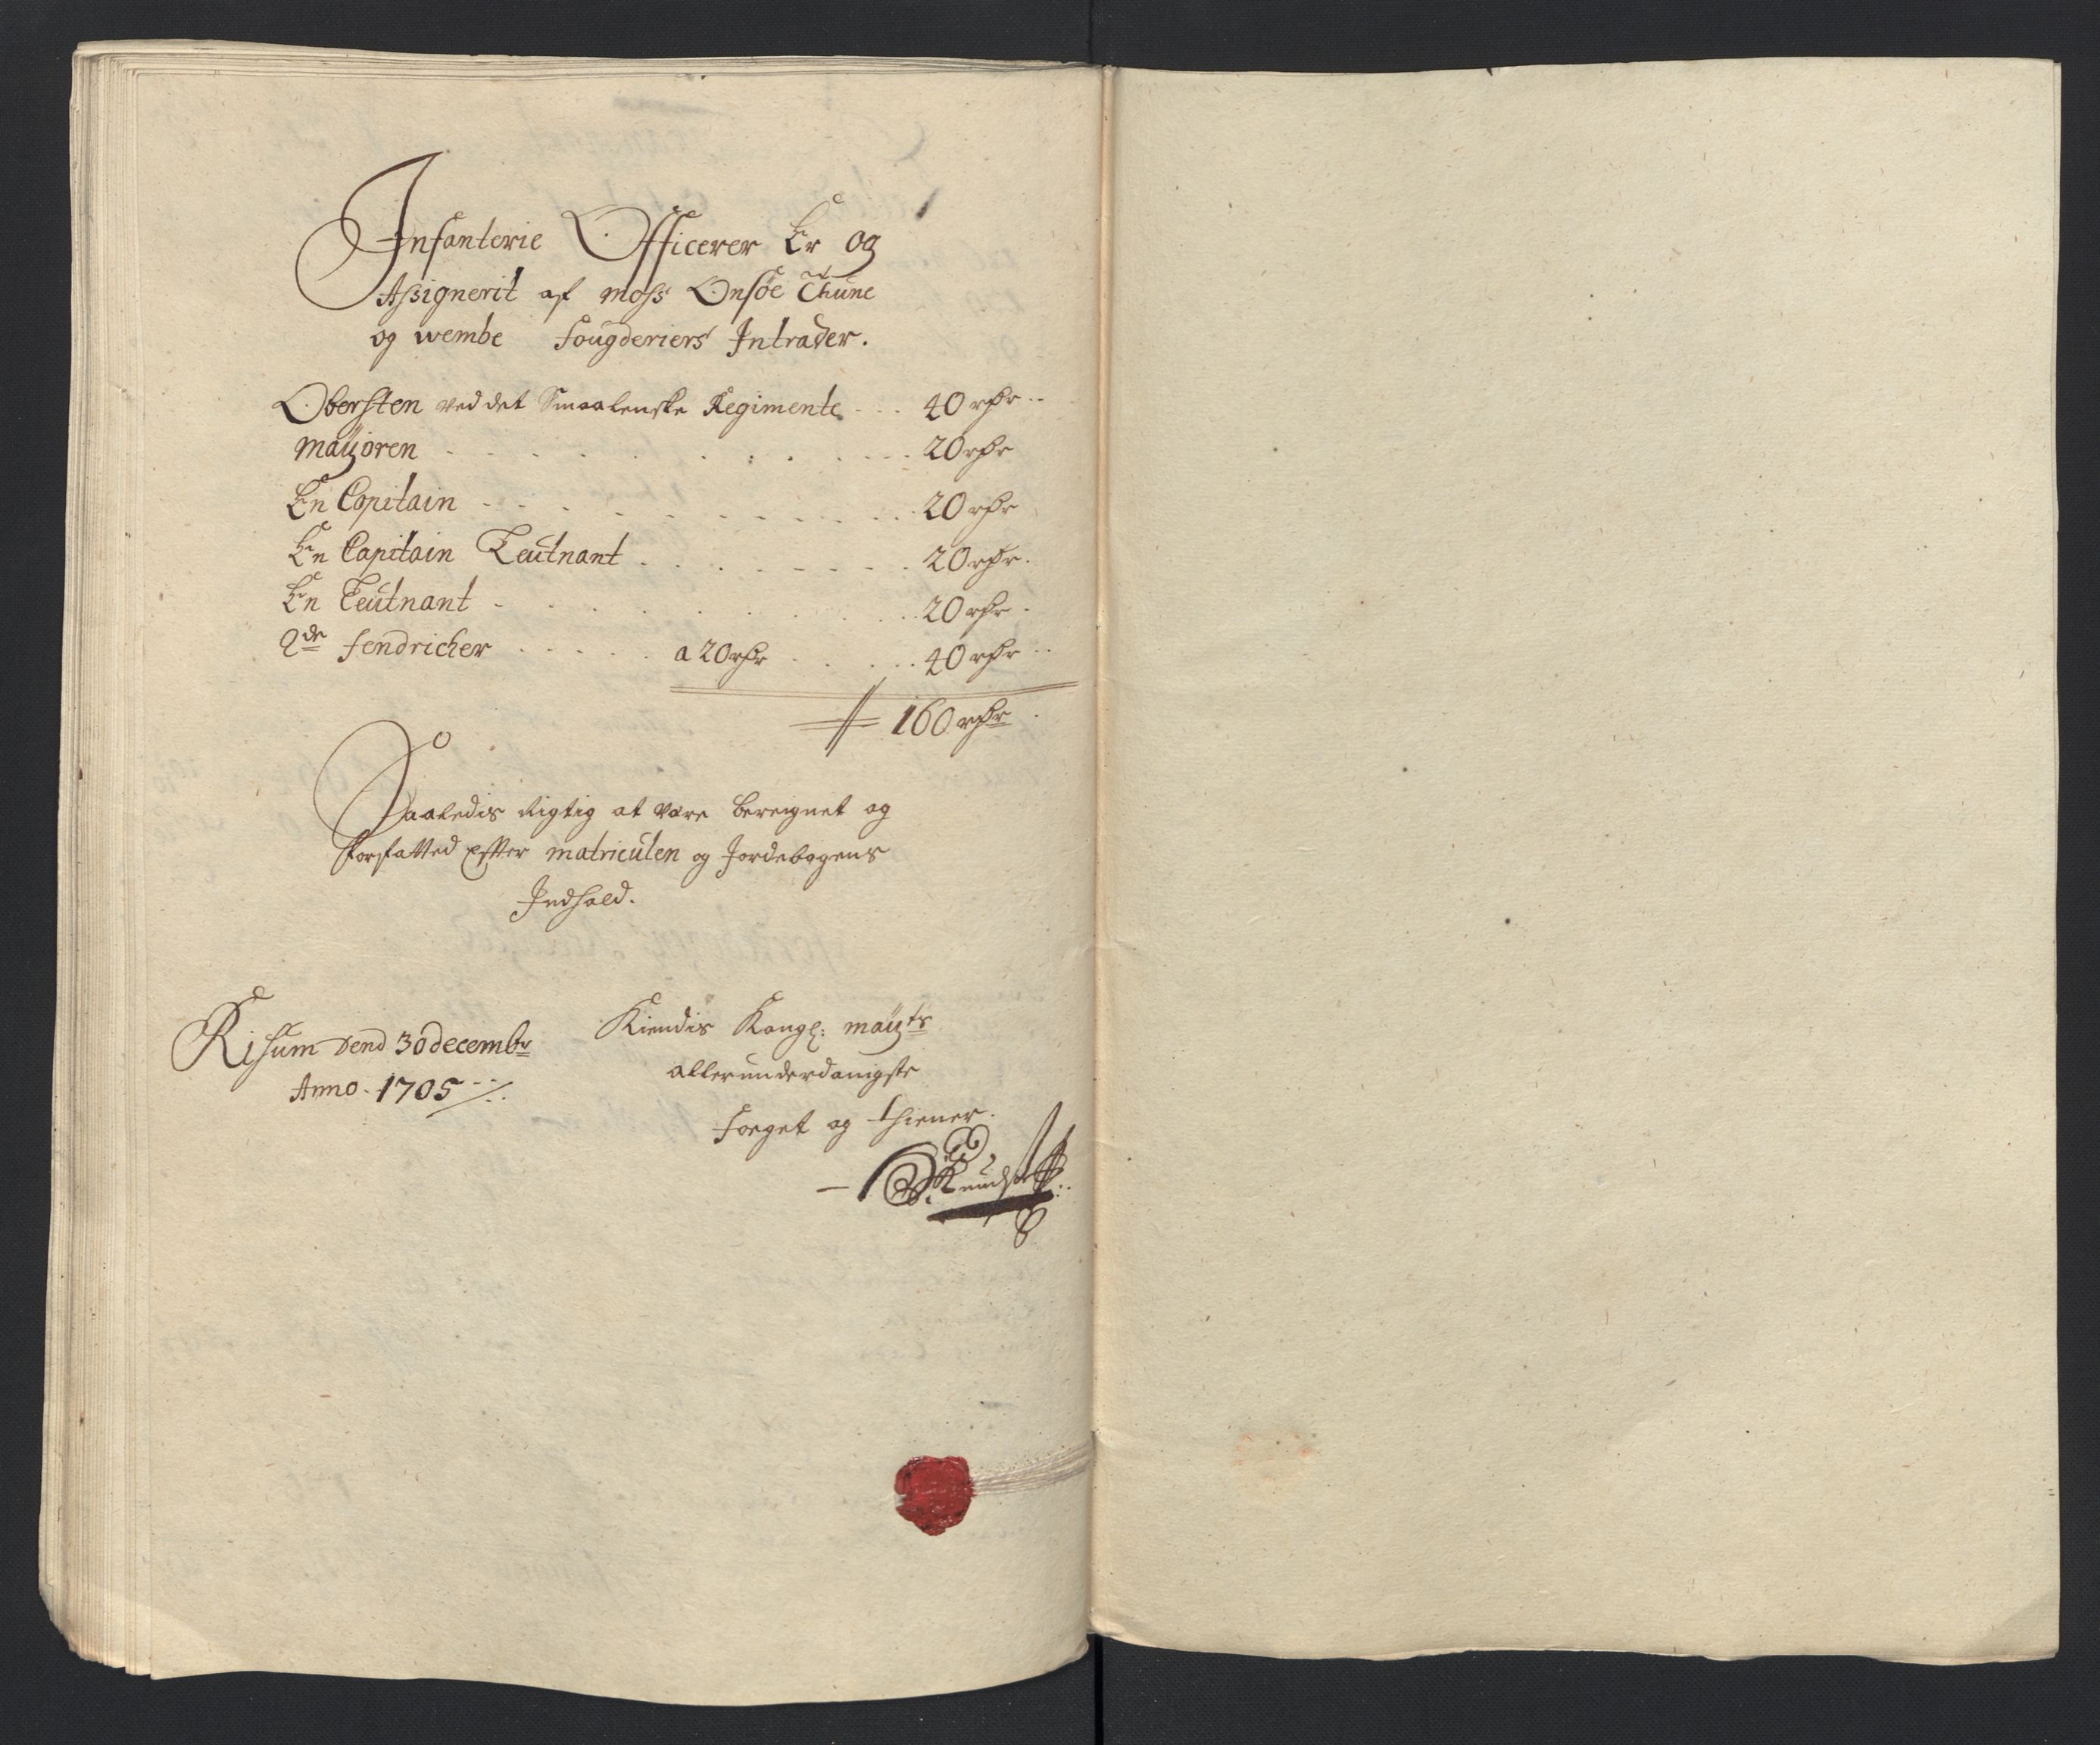 Infanterie Officerer Er og
Assignerit af Moss Onsøe Thune
og wembe Fougderiers Intrader.
Obersten ved det Smaalenske Regimente - - - 40 rdr
Maÿoren 20 rdr
En Capitain 20 rdr
En Capitain Leutnant 20 rdr
En Leutnant 20 rdr
2de Fendricher a 20 rdr 40 rdr
160 rdr
Saaledis Rigtig at være bereignet og
forfatted efter Matriculen og Jordebogens
Indhold.
Kiendis Kongl: Maÿts
Risum dend 30 decembr
allerunderdanigste
Anno 1705
Foeget og Thiener.